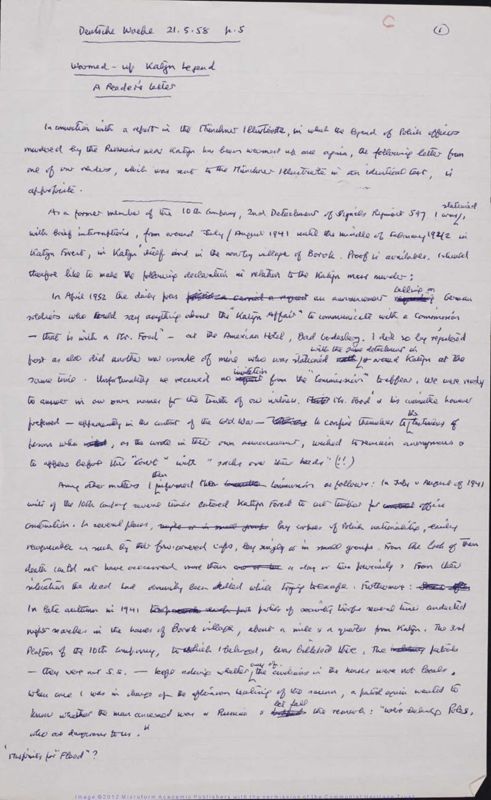 Deutsche Woche 21.5.58 p.5
C
①
Warmed-up Katyn Legend
A Reader's Letter
In connection with a report in the Münchner Illustrierte, in which the legend of Polish officers
murdered by the Russians near Katyn has been warmed up once again, the following letter from
one of our readers, which was sent to the Münchner Illustrierte in an identical text, is
apposite.
As a former member of the 10th Company, 2nd Detachment of Signals Regiment 537, I was, stationed
with brief interruptions, from around July/August 1941 until the middle of February 1942 in
Katyn Forest, in Katyn itself and in the nearby village of Borok. Proof is available. I should
therefore like to make the following declaration in relation to the Katyn mass murder:
In April 1952 the daily press an announcement calling on German
soldiers who could say anything about the "Katyn Affair" to communicate with a Commission
— that is with a Mr. Ford — at the American Hotel, Bad Godesberg. I did so by registered
post as also did another war comrade of mine who was stationed with the same detachment in or around Katyn at the
same time. Unfortunately we received no invitation from the "Commission" to appear. We were ready
to answer in our own names for the truth of our witness. Mr. Ford & his
preferred — apparently in the context of the Cold War — to confine themselves to the
persons who, as they wrote in their own announcement, wished to remain anonymous &
to appear before this "Court" with "sacks over their heads" (!!)
Among other matters I informed then Commission as follows: In July & August of 1941
units of the 10th Company several times entered Katyn Forest to cut timber for office
construction. In several places, lay corpses of Polish nationality, easily
recognisable as such by their four-cornered caps, lay singly or in small groups. From the look of them
death could not have occurred more than a day or two previously & from their
situation the dead had evidently been killed while trying to escape. Furthermore:
In late autumn in 1941 patrols of security troops several times conducted
night searches in the houses of Borok village, about a mile & a quarter from Katyn. The 3rd
Platoon of the 10th Company, to which I belonged, was billeted there. The patrols
— they were not S.S. — kept asking whether any of the civilians in the houses were not locals.
When once I was in charge of the of the, a patrol again wanted to
know whether the man concerned was a Russian & let fall the remark: "We're seeking Poles,
who are dangerous to us."
'Misprint for "Flood"?
Image ©2012 Microform Academic Publishers with the permission of the Communist Heritage Trust